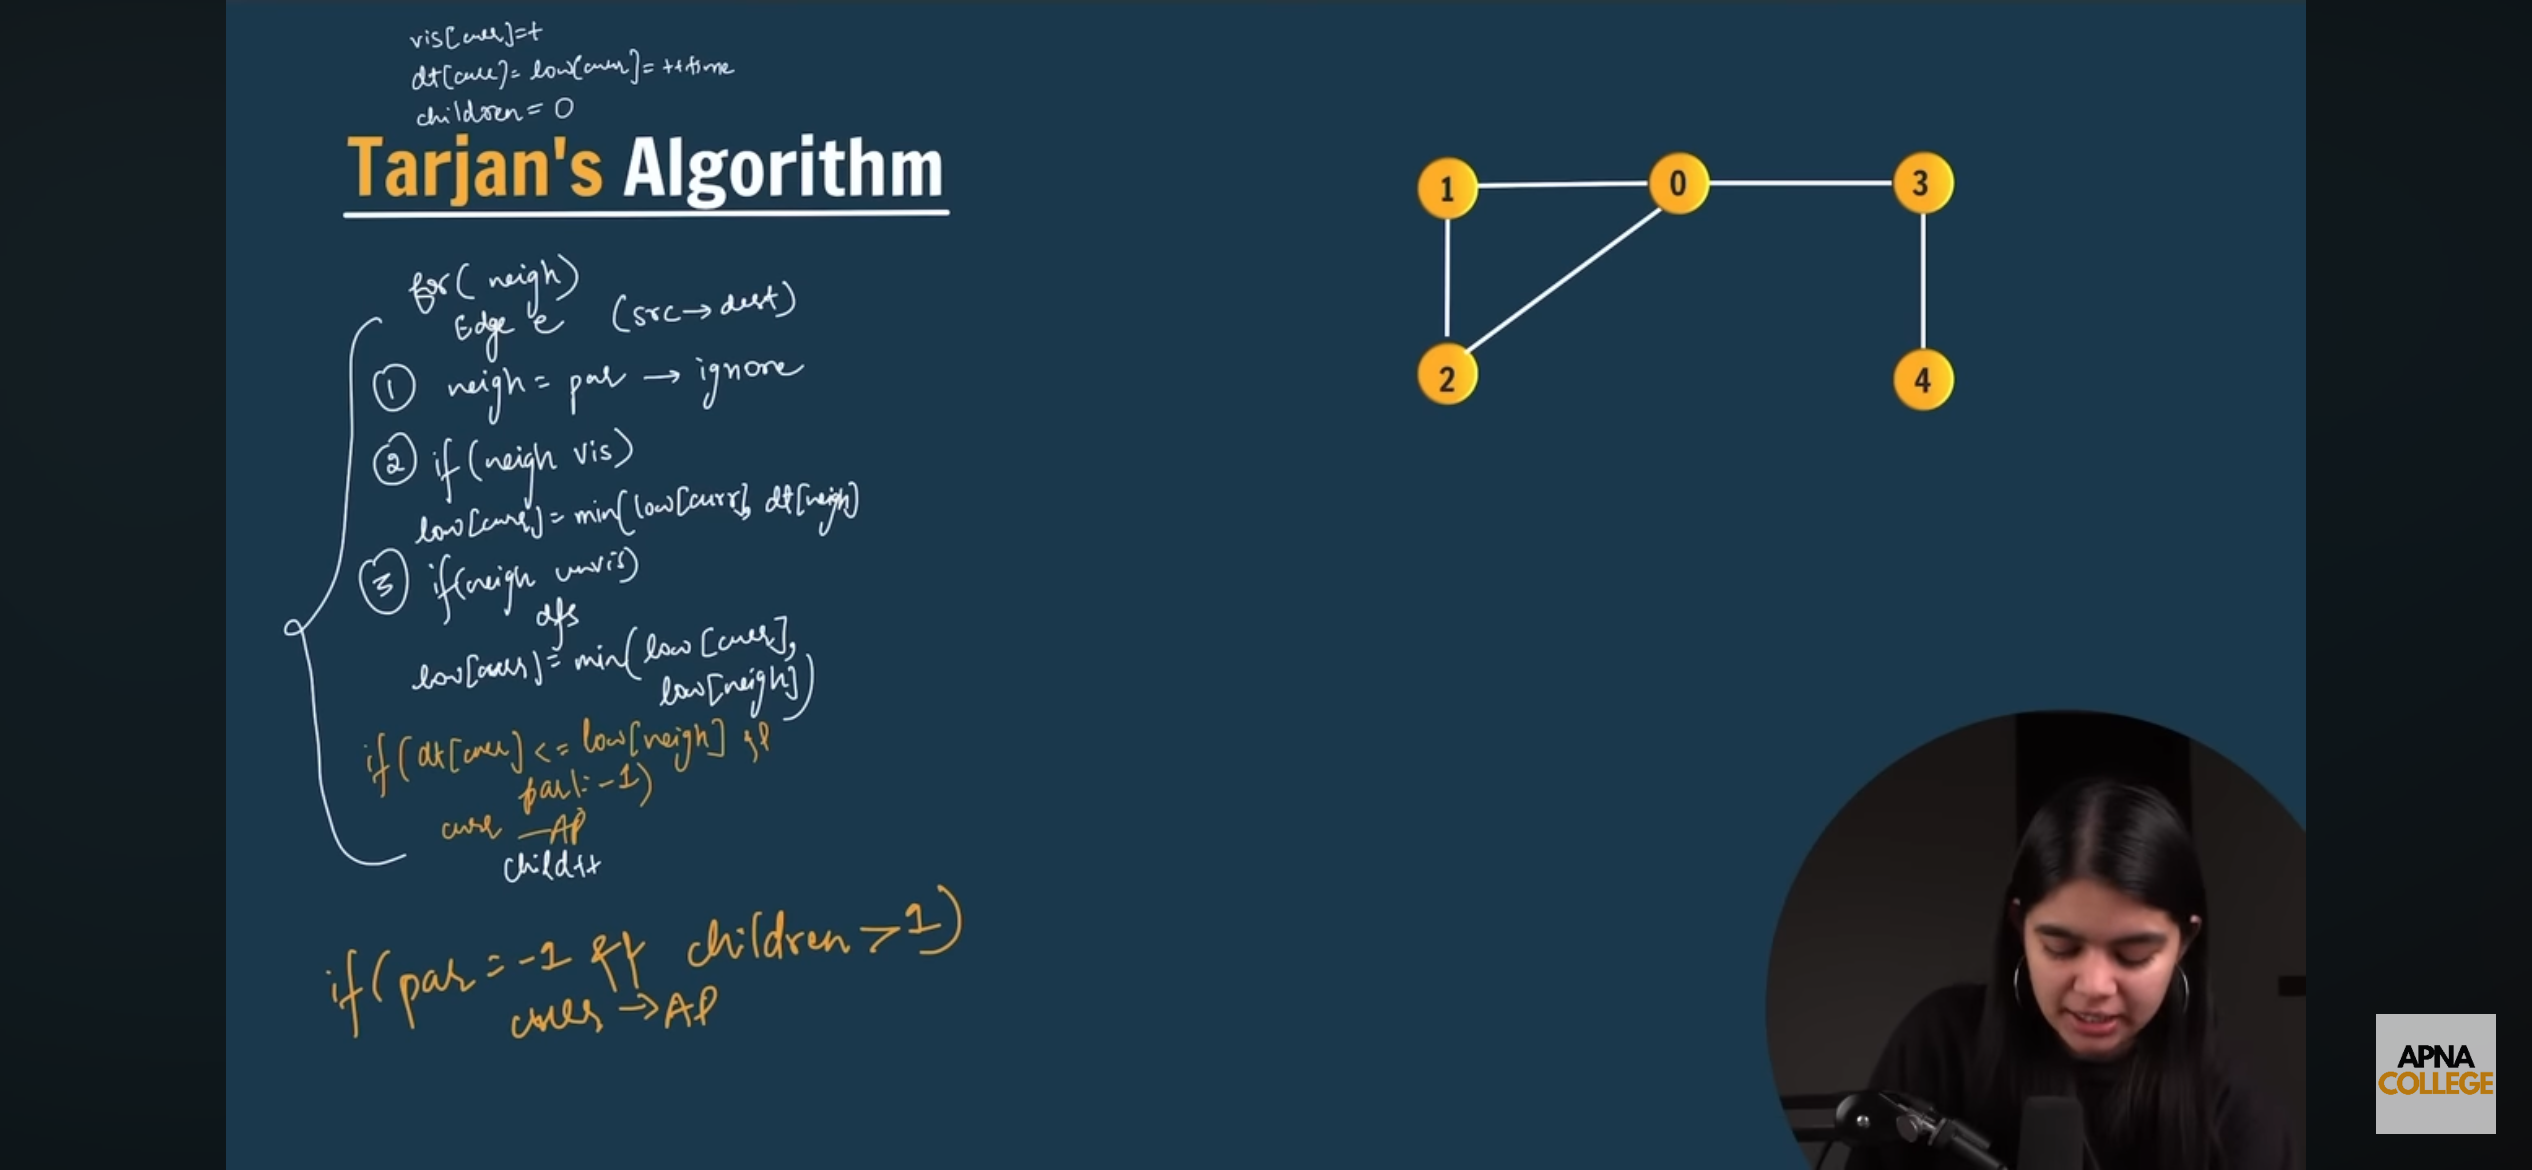 vis[curr]=t
dt[curr]= low[curr]= ++time
children = 0
Tarjan's Algorithm
for( neigh)
Edge e (src→dest)
1 neigh = par → ignore
2 if (neigh vis)
low[curr] = min(low[curr], dt[neigh]
3 if(neigh unvis)
dfs
low[curr] = min(low[curr],
low[neigh])
if(dt[curr] <= low[neigh] &&
par!=-1)
curr —AP
child++
if(par = -1 && children > 1)
curr → AP
1
0
3
2
4
APNA
COLLEGE